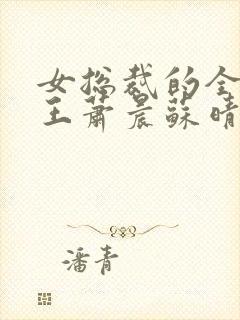 女总裁的全
王萧晨苏晴
潘青